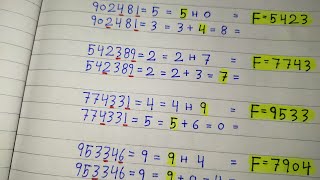 902481 = 5 = 5 + 0 = F=5423
902481 = 3 = 3 + 4 = 8 =
542389 = 2 = 2 + 7 = F=7743
542389 = 2 = 2 + 3 = 7 =
774331 = 4 = 4 + 9 = F=9533
774331 = 5 = 5 + 6 = 0 =
953346 = 9 = 9 + 4 = F=7904
953346 = 9 = + 0 = 4 =